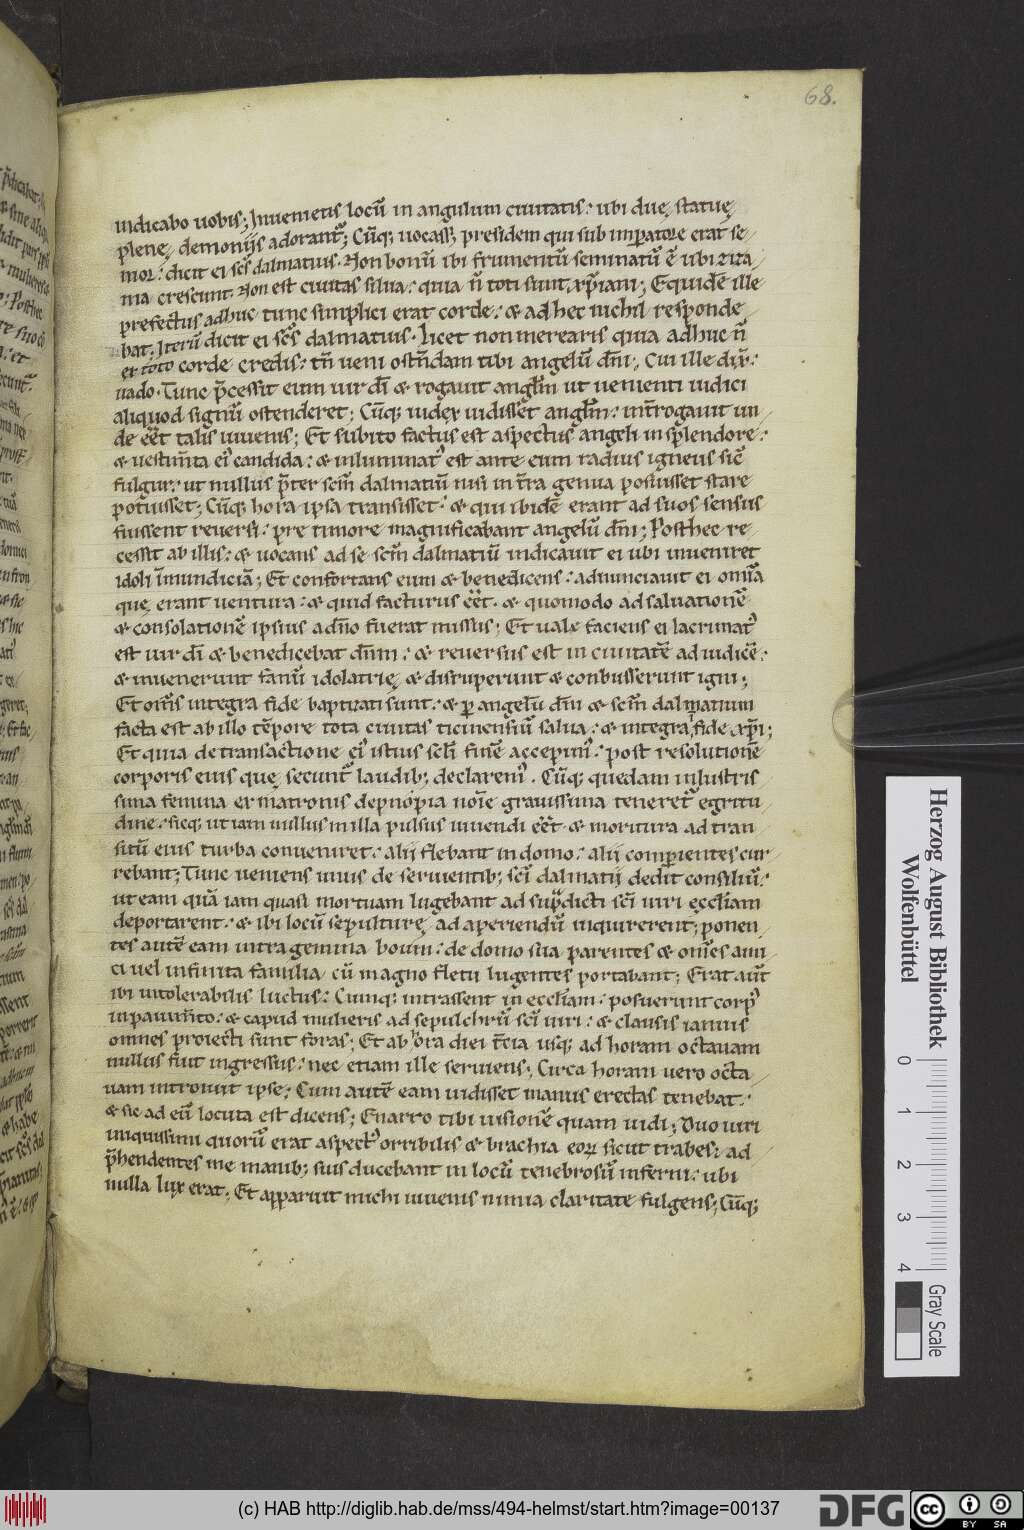 68.
indicabo uobis; Inuenietis locū in angulum ciuitatis: ubi duę statuę
plenę demonijs adorant᷑; Cūq; uocass; presidem qui sub imperatore erat se
mor: dicit ei scs̄ dalmatius. Non bonū ibi frumentū seminatū ē ubi ziza
nia crescunt. Non est ciuitas salua: quia n̄ toti sunt xp̄iani; Equidē ille
prefectus adhuc tunc simplici erat corde: & ad hec nichil responde
bat; Iterū dicit ei scs̄ dalmatius. Licet non merearis quia adhuc n̄
ex toto corde credis: tn̄ ueni ostn̄dam tibi angelū dn̄i; Cui ille dix̄:
uado. Tunc p̄cessit eum uir dī & rogauit anglm̄ ut uenienti iudici
aliquod signū ostenderet; Cūq; iudex uidisset anglm̄: int̄rogauit un
de eēt talis iuuenis; Et subito factus est aspectus angeli in splendore:
& uestim̄ta ei᾽ candida: & inluminat᾽ est ante eum radius igneus sic̄
fulgur: ut nullus p̄ter scm̄ dalmatiū nisi in t̄ra genua posuisset stare
potuisset; Cūq; hora ipsa transisset: & qui ibidē erant ad suos sensus
fuissent reuersi: pre timore magnificabant angelū dn̄i; Posthec re
cessit ab illis: & uocans ad se scm̄ dalmatiū indicauit ei ubi inueniret
idoli īmundiciā; Et confortans eum & benedicens: adnunciauit ei omīa
quę erant uentura: & quid facturus eēt. & quomodo ad saluationē
& consolationē ipsius a dn̄o fuerat missus; Et uale faciens ei lacrimat᾽
est uir dī & benedicebat dn̄m: & reuersus est in ciuitatē ad iudicē:
& inuenerunt fanū idolatrię & disruperunt & conbusserunt igni;
Et om̄s integra fide baptizati sunt: & p angelū dn̄i & scm̄ dalmatium
facta est ab illo tēpore tota ciuitas ticinensiū salua: & integra fide xp̄i;
Et quia de transactione ei᾽ istius scl̄i finē accepim᾽: post resolutionē
corporis eius quę secunt᷑ laudib; declarem᾽. Cūq; quedam inlustris
sima femina ex matronis depnopia noīe grauissima teneret᷑ egritu
dine: sicq; ut iam nullus in illa pulsus uiuendi eēt & moritura ad tran
situ᷑ eius turba conueniret: alij flebant in domo: alij comperientes cur
rebant; Tunc ueniens unus de seruientib; scī dalmatij dedit consiliū:
ut eam quā iam quasi mortuam lugebant ad sup̄dicti scī uiri eccl̄iam
deportarent: & ibi locū sepulturę ad aperiendū inquirerent; ponen
tes autē eam intra gemina boum: de domo sua parentes & om̄es ami
ci uel infinita familia cū magno fletu lugentes portabant; Erat aūt
ibi intolerabilis luctus: Cumq; intrassent in eccl̄iam: posuerunt corp᾽
in pauim̄to: & capud mulieris ad sepulchrū scī uiri: & clausis ianuis
omnes proiecti sunt foras; Et ab hora diei t̄cia usq; ad horam octauam
nullus fuit ingressus: nec etiam ille seruiens; Circa horam uero octa
uam introiuit ipse; Cum autē eam uidisset manus erectas tenebat:
& sic ad eū locuta est dicens; Enarro tibi uisionē quam uidi; Duo uiri
iniquissimi quorū erat aspect᾽ orribilis & brachia eoꝝ sicut trabes: ad
p̄hendentes me manib; suis ducebant in locū tenebrosū inferni: ubi
nulla lux erat; Et apparuit michi iuuenis nimia claritate fulgens; Cūq;
Herzog August Bibliothek
Wolfenbüttel
0 1 2 3 4
Gray Scale
(c) HAB http://diglib.hab.de/mss/494-helmst/start.htm?image=00137
DFG
cc BY SA